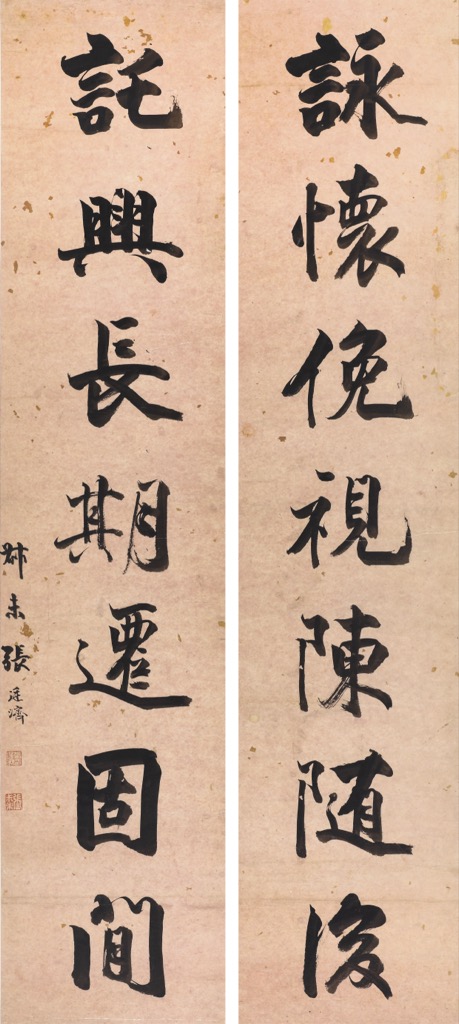 詠懷俛視陳随後
託興長期遷固間
叔未張廷濟